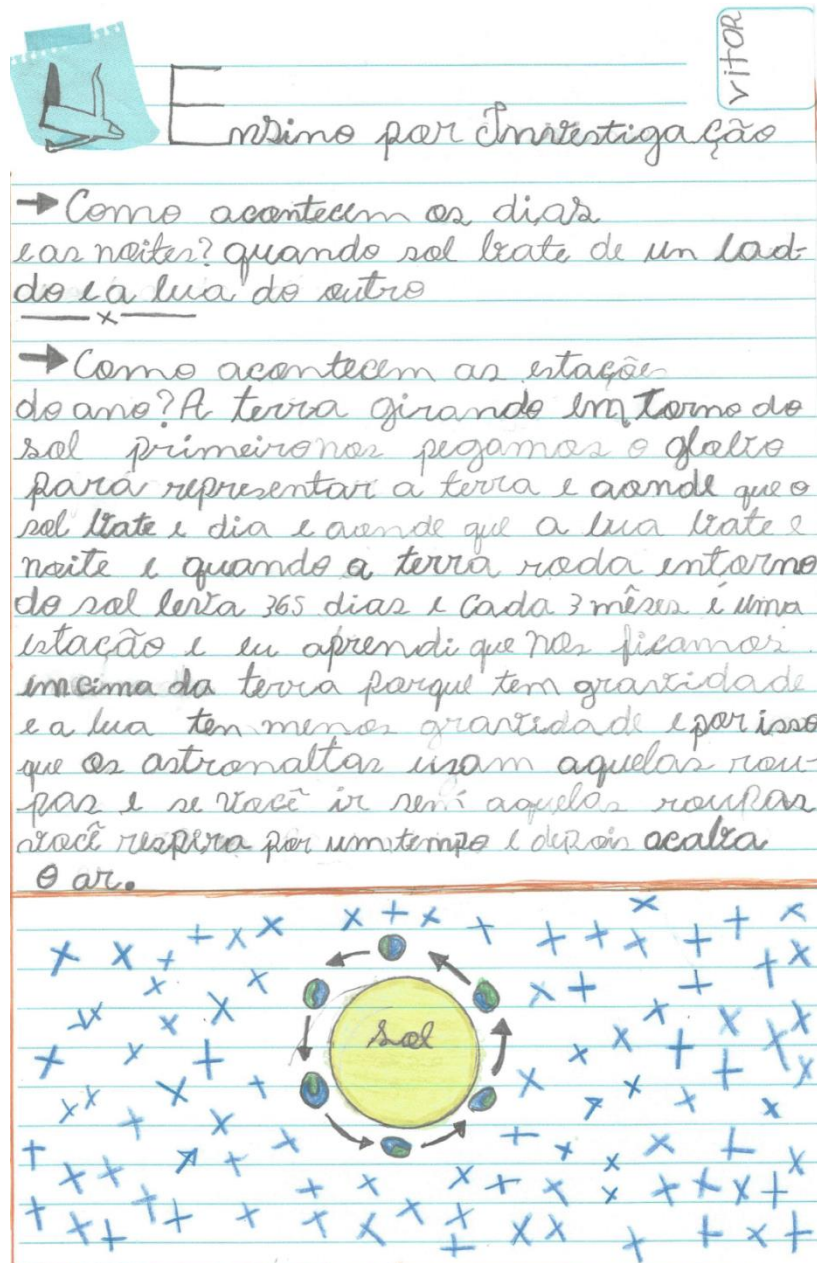 vitor
Ensino por Investigação
→ Como acontecem os dias
e as noites? quando sol bate de un lad-
do e a lua do outro
→ Como acontecem as estações
do ano? A terra girando em torno do
sol primeiro nos pegamos o globo
para representar a terra e aonde que o
sol bate e dia e aonde que a lua bate e
noite e quando a terra roda entorno
do sol leva 365 dias e Cada 3 mêses é uma
estação e eu aprendi que nos ficamos
emcima da terra porque tem gravidade
e a lua ten menos gravidade e por isso
que os astronaltas usam aquelas rou-
pas e se você ir sem aquelas roupas
você respira por um tempo e depois acaba
o ar.
sol